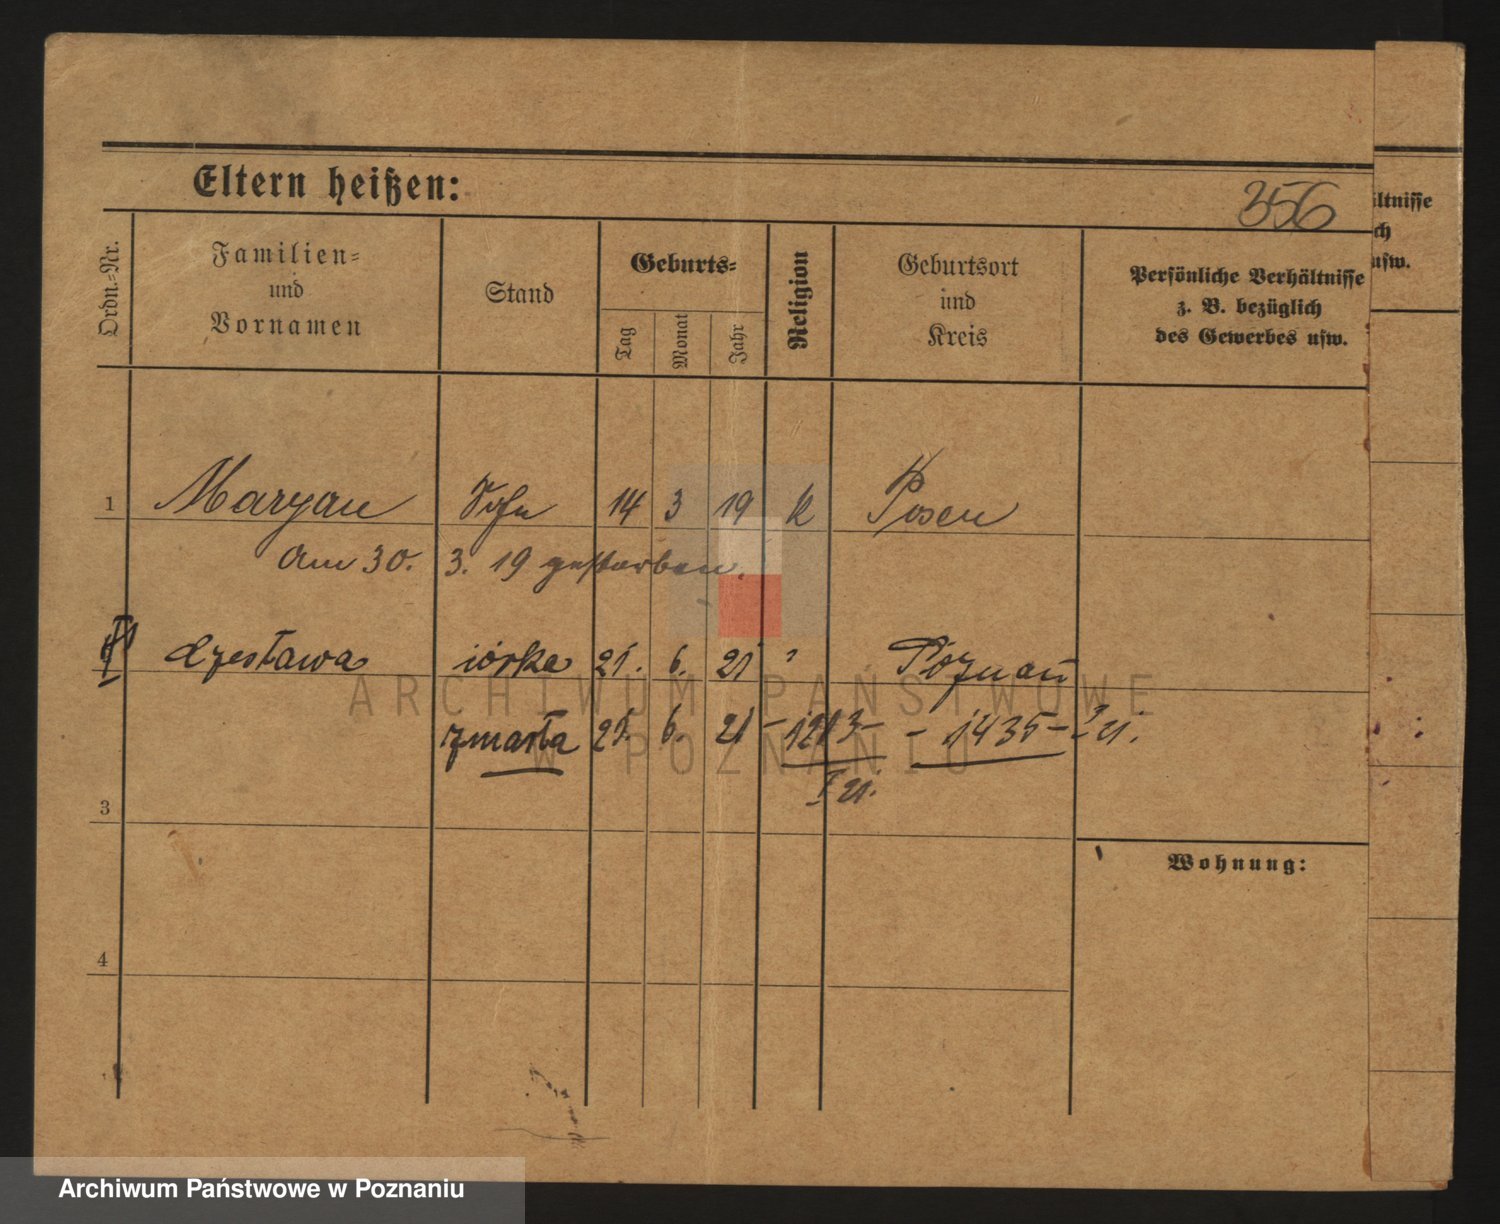 Eltern heißen:
356
Ordn.-Nr.
Familien-
und
Vornamen
Stand
Geburts-
Tag
Monat
Jahr
Religion
Geburtsort
und
Kreis
Persönliche Verhältnisse
z. B. bezüglich
des Gewerbes usw.
ltnisse
ch
usw.
1 Maryan Sohn 14 3 19 k Posen
Am 30. 3. 19 gestorben.
II Czesława córka 21. 6. 21 " Poznań
zmarła 21. 6. 21 - 1213 - - 1435 -
3
Wohnung:
4
ARCHIWUM PAŃSTWOWE
W POZNANIU
Archiwum Państwowe w Poznaniu